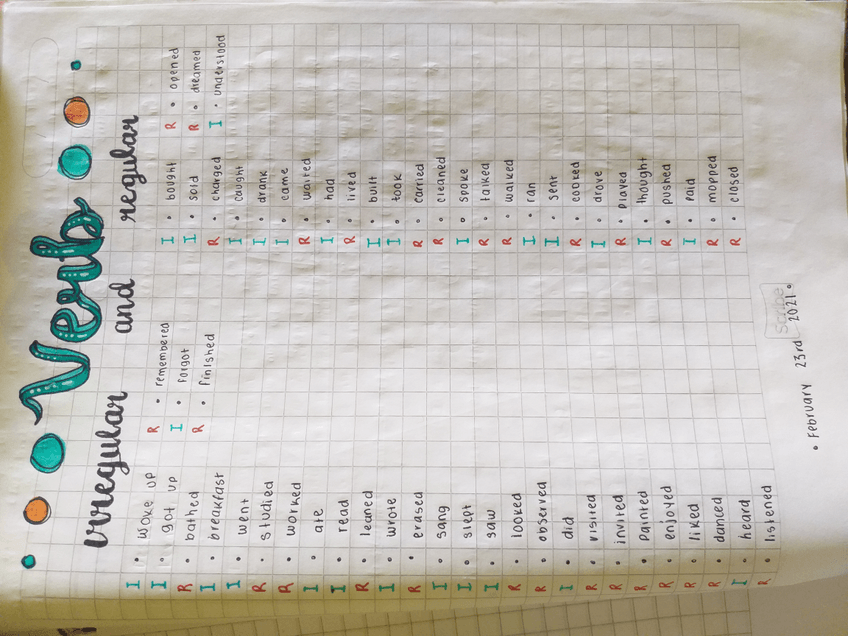 Verbs
irregular and regular
I • woke up
I • got up
R • bathed
I • breakfast
I • went
R • studied
R • worked
I • ate
I • read
R • leaned
I • wrote
R • erased
I • sang
I • slept
I • saw
R • looked
R • observed
I • did
R • visited
R • invited
R • painted
R • enjoyed
R • liked
R • danced
I • heard
R • listened
R • remembered
I • forgot
R • finished
I • bought
I • sold
R • charged
I • caught
I • drank
I • came
R • waited
I • had
R • lived
I • built
I • took
R • carried
R • cleaned
I • spoke
R • talked
R • walked
I • ran
I • sent
R • cooked
I • drove
R • played
I • thought
R • pushed
I • paid
R • mopped
R • closed
R • opened
R • dreamed
I • understood
Scribe
• February 23rd 2021•